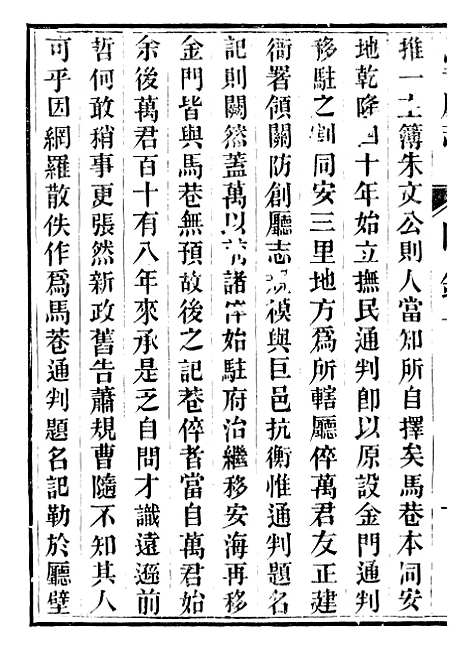 推一主簿朱文公則人當知所自擇矣馬巷本同安
地乾隆四十年始立撫民通判卽以原設金門通判
移駐之割同安三里地方爲所轄廳倅萬君友正建
衙署領關防創廳志規模與巨邑抗衡惟通判題名
記則闕然蓋萬以前諸倅始駐府治繼移安海再移
金門皆與馬巷無預故後之記巷倅者當自萬君始
余後萬君百十有八年來承是乏自問才識遠遜前
哲何敢稍事更張然新政舊告蕭規曹隨不知其人
可乎因網羅散佚作爲馬巷通判題名記勒於廳壁